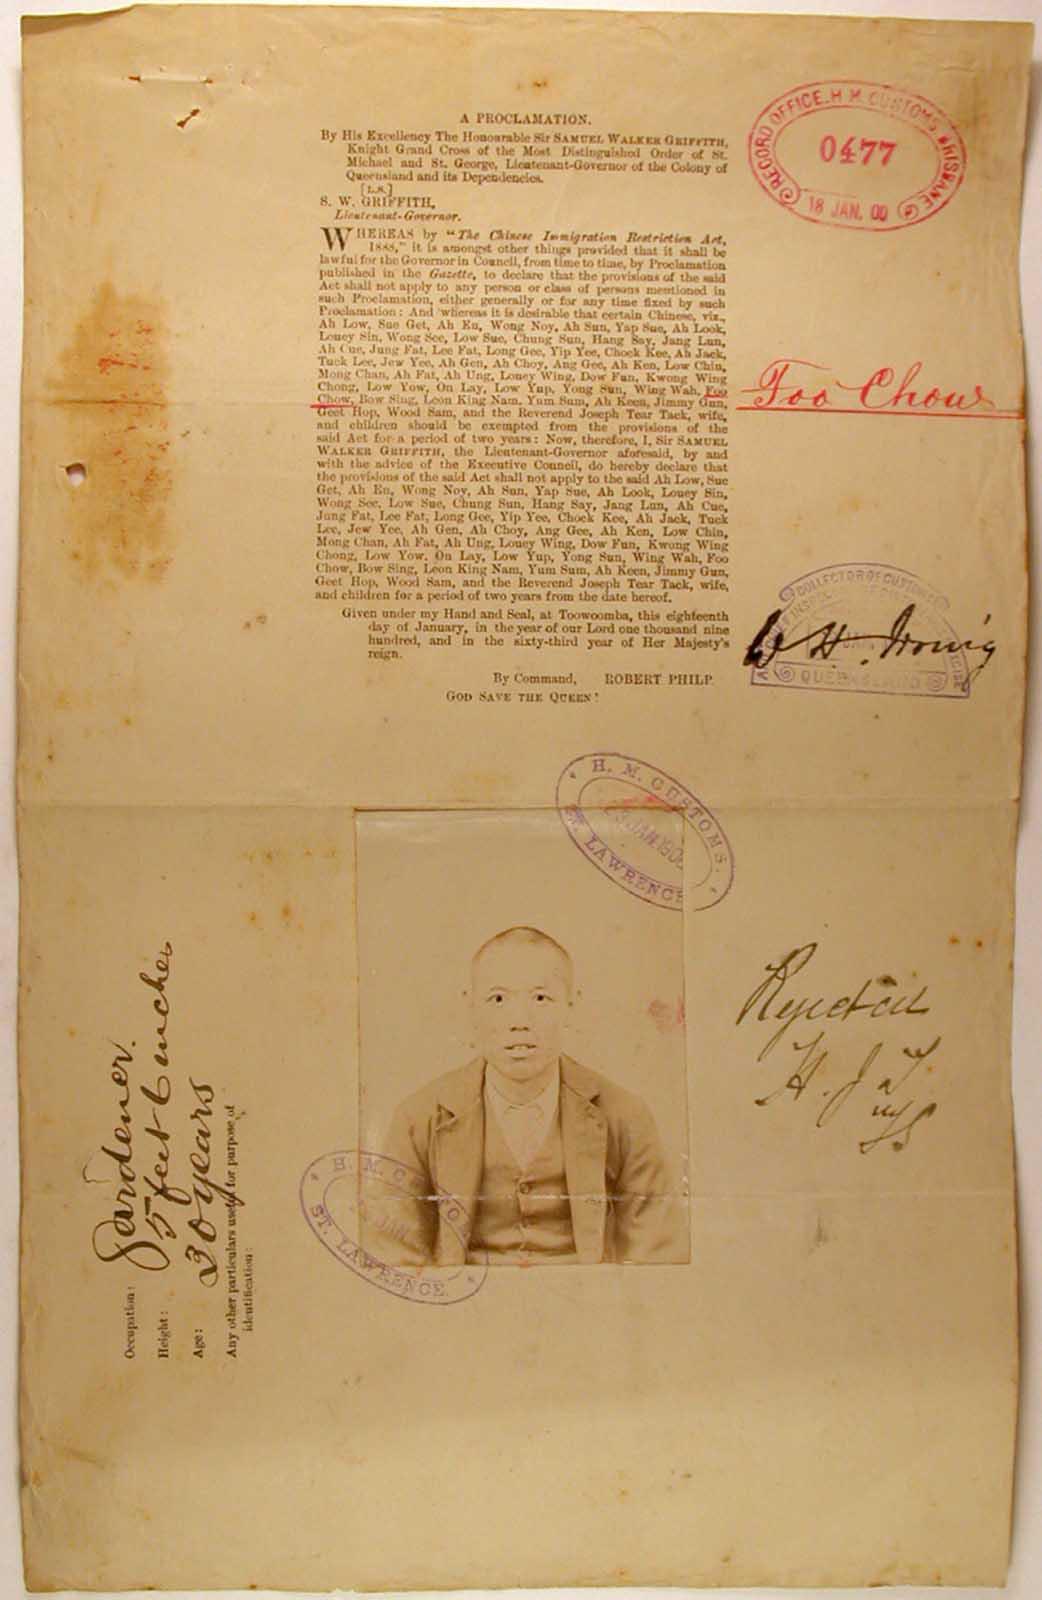 A PROCLAMATION.
By His Excellency The Honourable Sir SAMUEL WALKER GRIFFITH,
Knight Grand Cross of the Most Distinguished Order of St.
Michael and St. George, Lieutenant-Governor of the Colony of
Queensland and its Dependencies.
[L.S.]
S. W. GRIFFITH,
Lieutenant-Governor.
WHEREAS by "The Chinese Immigration Restriction Act,
1888," it is amongst other things provided that it shall be
lawful for the Governor in Council, from time to time, by Proclamation
published in the Gazette, to declare that the provisions of the said
Act shall not apply to any person or class of persons mentioned in
such Proclamation, either generally or for any time fixed by such
Proclamation: And whereas it is desirable that certain Chinese, viz.,
Ah Low, Sue Get, Ah En, Wong Noy, Ah Sun, Yap Sue, Ah Look,
Louey Sin, Wong See, Low Sue, Chung Sun, Hang Say, Jang Lun,
Ah Cue, Jung Fat, Lee Fat, Long Gee, Yip Yee, Chock Kee, Ah Jack,
Tuck Lee, Jew Yee, Ah Gen, Ah Choy, Ang Gee, Ah Ken, Low Chin,
Mong Chan, Ah Fat, Ah Ung, Louey Wing, Dow Fun, Kwong Wing
Chong, Low Yow, On Lay, Low Yup, Yong Sun, Wing Wah, Foo
Chow, Bow Sing, Leon King Nam, Yum Sum, Ah Keen, Jimmy Gun,
Geet Hop, Wood Sam, and the Reverend Joseph Tear Tack, wife,
and children should be exempted from the provisions of the
said Act for a period of two years: Now, therefore, I, Sir SAMUEL
WALKER GRIFFITH, the Lieutenant-Governor aforesaid, by and
with the advice of the Executive Council, do hereby declare that
the provisions of the said Act shall not apply to the said Ah Low, Sue
Get, Ah En, Wong Noy, Ah Sun, Yap Sue, Ah Look, Louey Sin,
Wong See, Low Sue, Chung Sun, Hang Say, Jang Lun, Ah Cue,
Jung Fat, Lee Fat, Long Gee, Yip Yee, Chock Kee, Ah Jack, Tuck
Lee, Jew Yee, Ah Gen, Ah Choy, Ang Gee, Ah Ken, Low Chin,
Mong Chan, Ah Fat, Ah Ung, Louey Wing, Dow Fun, Kwong Wing
Chong, Low Yow, On Lay, Low Yup, Yong Sun, Wing Wah, Foo
Chow, Bow Sing, Leon King Nam, Yum Sum, Ah Keen, Jimmy Gun,
Geet Hop, Wood Sam, and the Reverend Joseph Tear Tack, wife,
and children for a period of two years from the date hereof.
Given under my Hand and Seal, at Toowoomba, this eighteenth
day of January, in the year of our Lord one thousand nine
hundred, and in the sixty-third year of Her Majesty's
reign.
By Command, ROBERT PHILP.
GOD SAVE THE QUEEN!
RECORD OFFICE. H. M. CUSTOMS, BRISBANE
0477
18 JAN. 00
Foo Chow
COLLECTOR OF CUSTOMS
QUEENSLAND
W. H. Irving
H. M. CUSTOMS.
23 JAN 1900
ST. LAWRENCE
H. M. CUSTO
JAN
ST. LAWRENCE
Rejected
H. J. T
Occupation: Gardener.
Height: 5 feet 6 inches
Age: 30 years
Any other particulars useful for purpose of
identification: